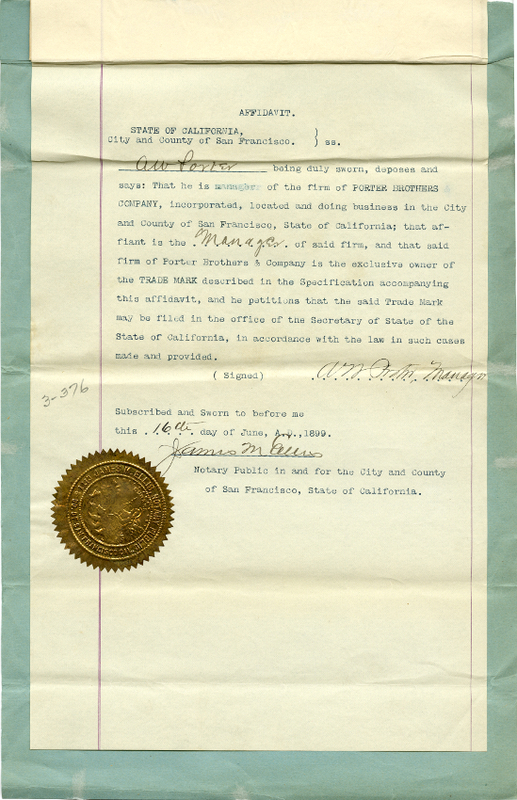 AFFIDAVIT.
STATE OF CALIFORNIA,
City and County of San Francisco. } ss.
A W Porter being duly sworn, deposes and
says: That he is manager of the firm of PORTER BROTHERS &
COMPANY, incorporated, located and doing business in the City
and County of San Francisco, State of California; that af-
fiant is the Manager of said firm, and that said
firm of Porter Brothers & Company is the exclusive owner of
the TRADE MARK described in the Specification accompanying
this affidavit, and he petitions that the said Trade Mark
may be filed in the office of the Secretary of State of the
State of California, in accordance with the law in such cases
made and provided.
(Signed) A.W. Porter Manager
3-376
Subscribed and Sworn to before me
this 16th day of June, A.D., 1899.
James M Ellis
Notary Public in and for the City and County
of San Francisco, State of California.